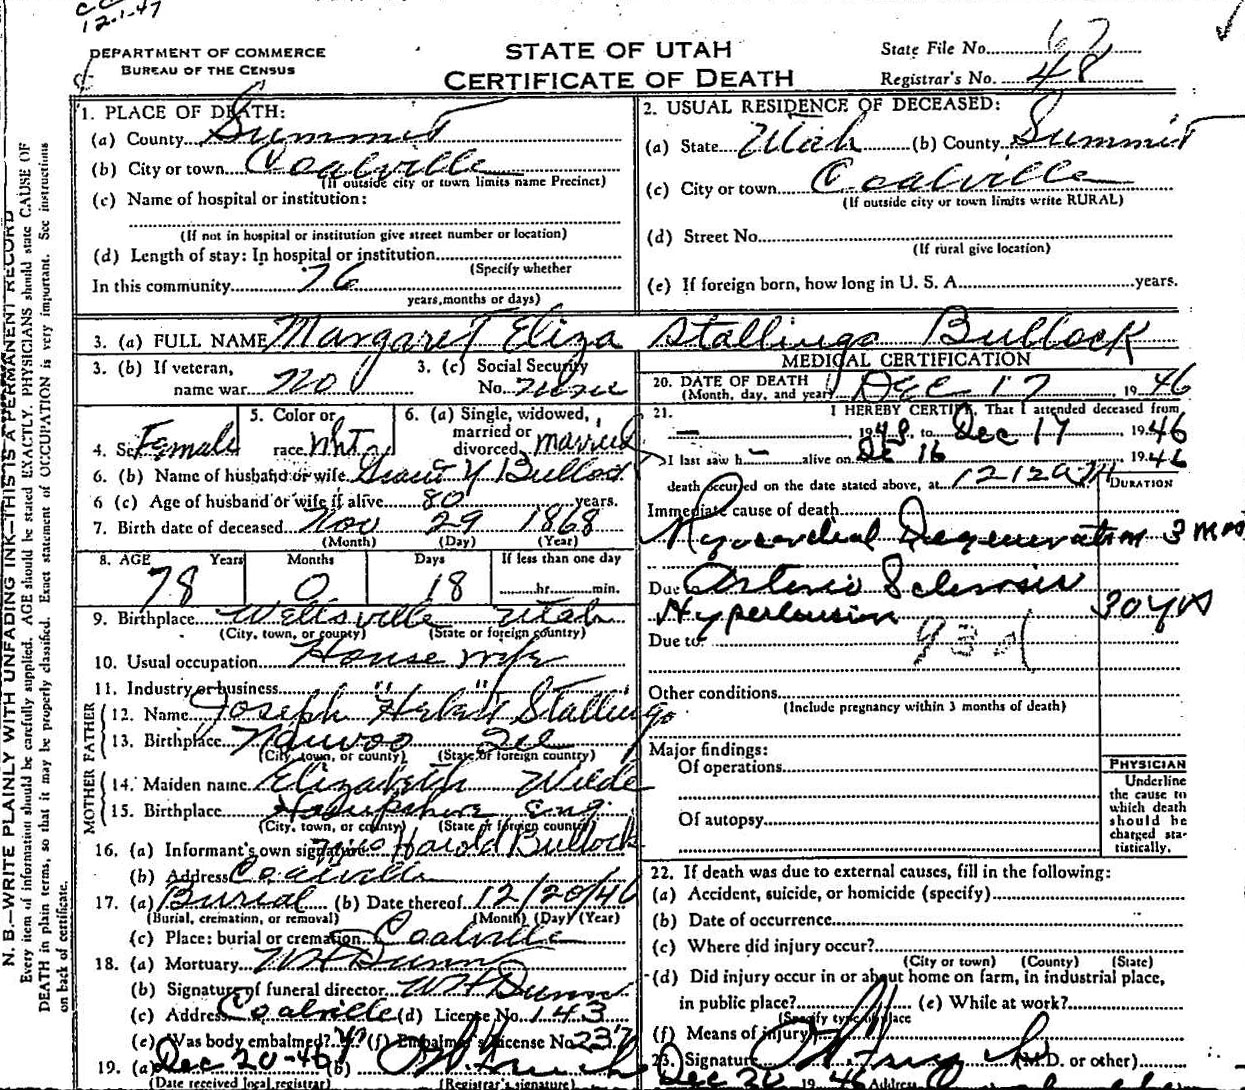 12-1-47
DEPARTMENT OF COMMERCE
BUREAU OF THE CENSUS
STATE OF UTAH
CERTIFICATE OF DEATH
State File No. 67
Registrar's No. 48
N. B.—WRITE PLAINLY WITH UNFADING INK—THIS IS A PERMANENT RECORD
Every item of information should be carefully supplied. AGE should be stated EXACTLY. PHYSICIANS should state CAUSE OF
DEATH in plain terms, so that it may be properly classified. Exact statement of OCCUPATION is very important. See instructions
on back of certificate.
1. PLACE OF DEATH:
(a) County Summit
(b) City or town Coalville
(If outside city or town limits name Precinct)
(c) Name of hospital or institution:
(If not in hospital or institution give street number or location)
(d) Length of stay: In hospital or institution
(Specify whether
In this community 76
years, months or days)
2. USUAL RESIDENCE OF DECEASED:
(a) State Utah (b) County Summit
(c) City or town Coalville
(If outside city or town limits write RURAL)
(d) Street No.
(If rural give location)
(e) If foreign born, how long in U. S. A. years.
3. (a) FULL NAME Margaret Eliza Stallings Bullock
3. (b) If veteran,
name war no
3. (c) Social Security
No. None
4. Sex Female
5. Color or
race Wht
6. (a) Single, widowed,
married or
divorced married
6. (b) Name of husband or wife Bullock
6 (c) Age of husband or wife if alive 80 years.
7. Birth date of deceased Nov 29 1868
(Month) (Day) (Year)
8. AGE Years Months Days If less than one day
78 0 18 hr. min.
9. Birthplace Wellsville Utah
(City, town, or county) (State or foreign country)
10. Usual occupation House wife
11. Industry or business
FATHER
12. Name Joseph "Herbert" Stallings
13. Birthplace Nauvoo Ill
(City, town, or county) (State or foreign country)
MOTHER
14. Maiden name Elizabeth Wilde
15. Birthplace Hampshire Eng.
(City, town, or county) (State or foreign country)
16. (a) Informant's own signature Mrs Harold Bullock
(b) Address Coalville
17. (a) Burial (b) Date thereof 12/20/46
(Burial, cremation, or removal) (Month) (Day) (Year)
(c) Place: burial or cremation Coalville
18. (a) Mortuary WH Dunn
(b) Signature of funeral director WH Dunn
(c) Address Coalville (d) License No. 143
(e) Was body embalmed? (f) Embalmer's License No. 237
19. (a) Dec 20-46 (b)
(Date received local registrar) (Registrar's signature)
MEDICAL CERTIFICATION
20. DATE OF DEATH
(Month, day, and year) Dec 17 1946
21. I HEREBY CERTIFY, That I attended deceased from
— 1943, to Dec 17, 1946
I last saw h — alive on Dec 16 1946
death occurred on the date stated above, at 1212 AM
DURATION
Immediate cause of death
Myocardial Degeneration 3 mos
Due to Arterio Sclerosis
Hypertension 30 yrs
Due to: 93d
Other conditions
(Include pregnancy within 3 months of death)
Major findings:
Of operations
Of autopsy
PHYSICIAN
Underline
the cause to
which death
should be
charged sta-
tistically.
22. If death was due to external causes, fill in the following:
(a) Accident, suicide, or homicide (specify)
(b) Date of occurrence
(c) Where did injury occur?
(City or town) (County) (State)
(d) Did injury occur in or about home on farm, in industrial place,
in public place? (e) While at work?
(Specify type of place
(f) Means of injury
23. Signature (M.D. or other)
Dec 20 1946 Address